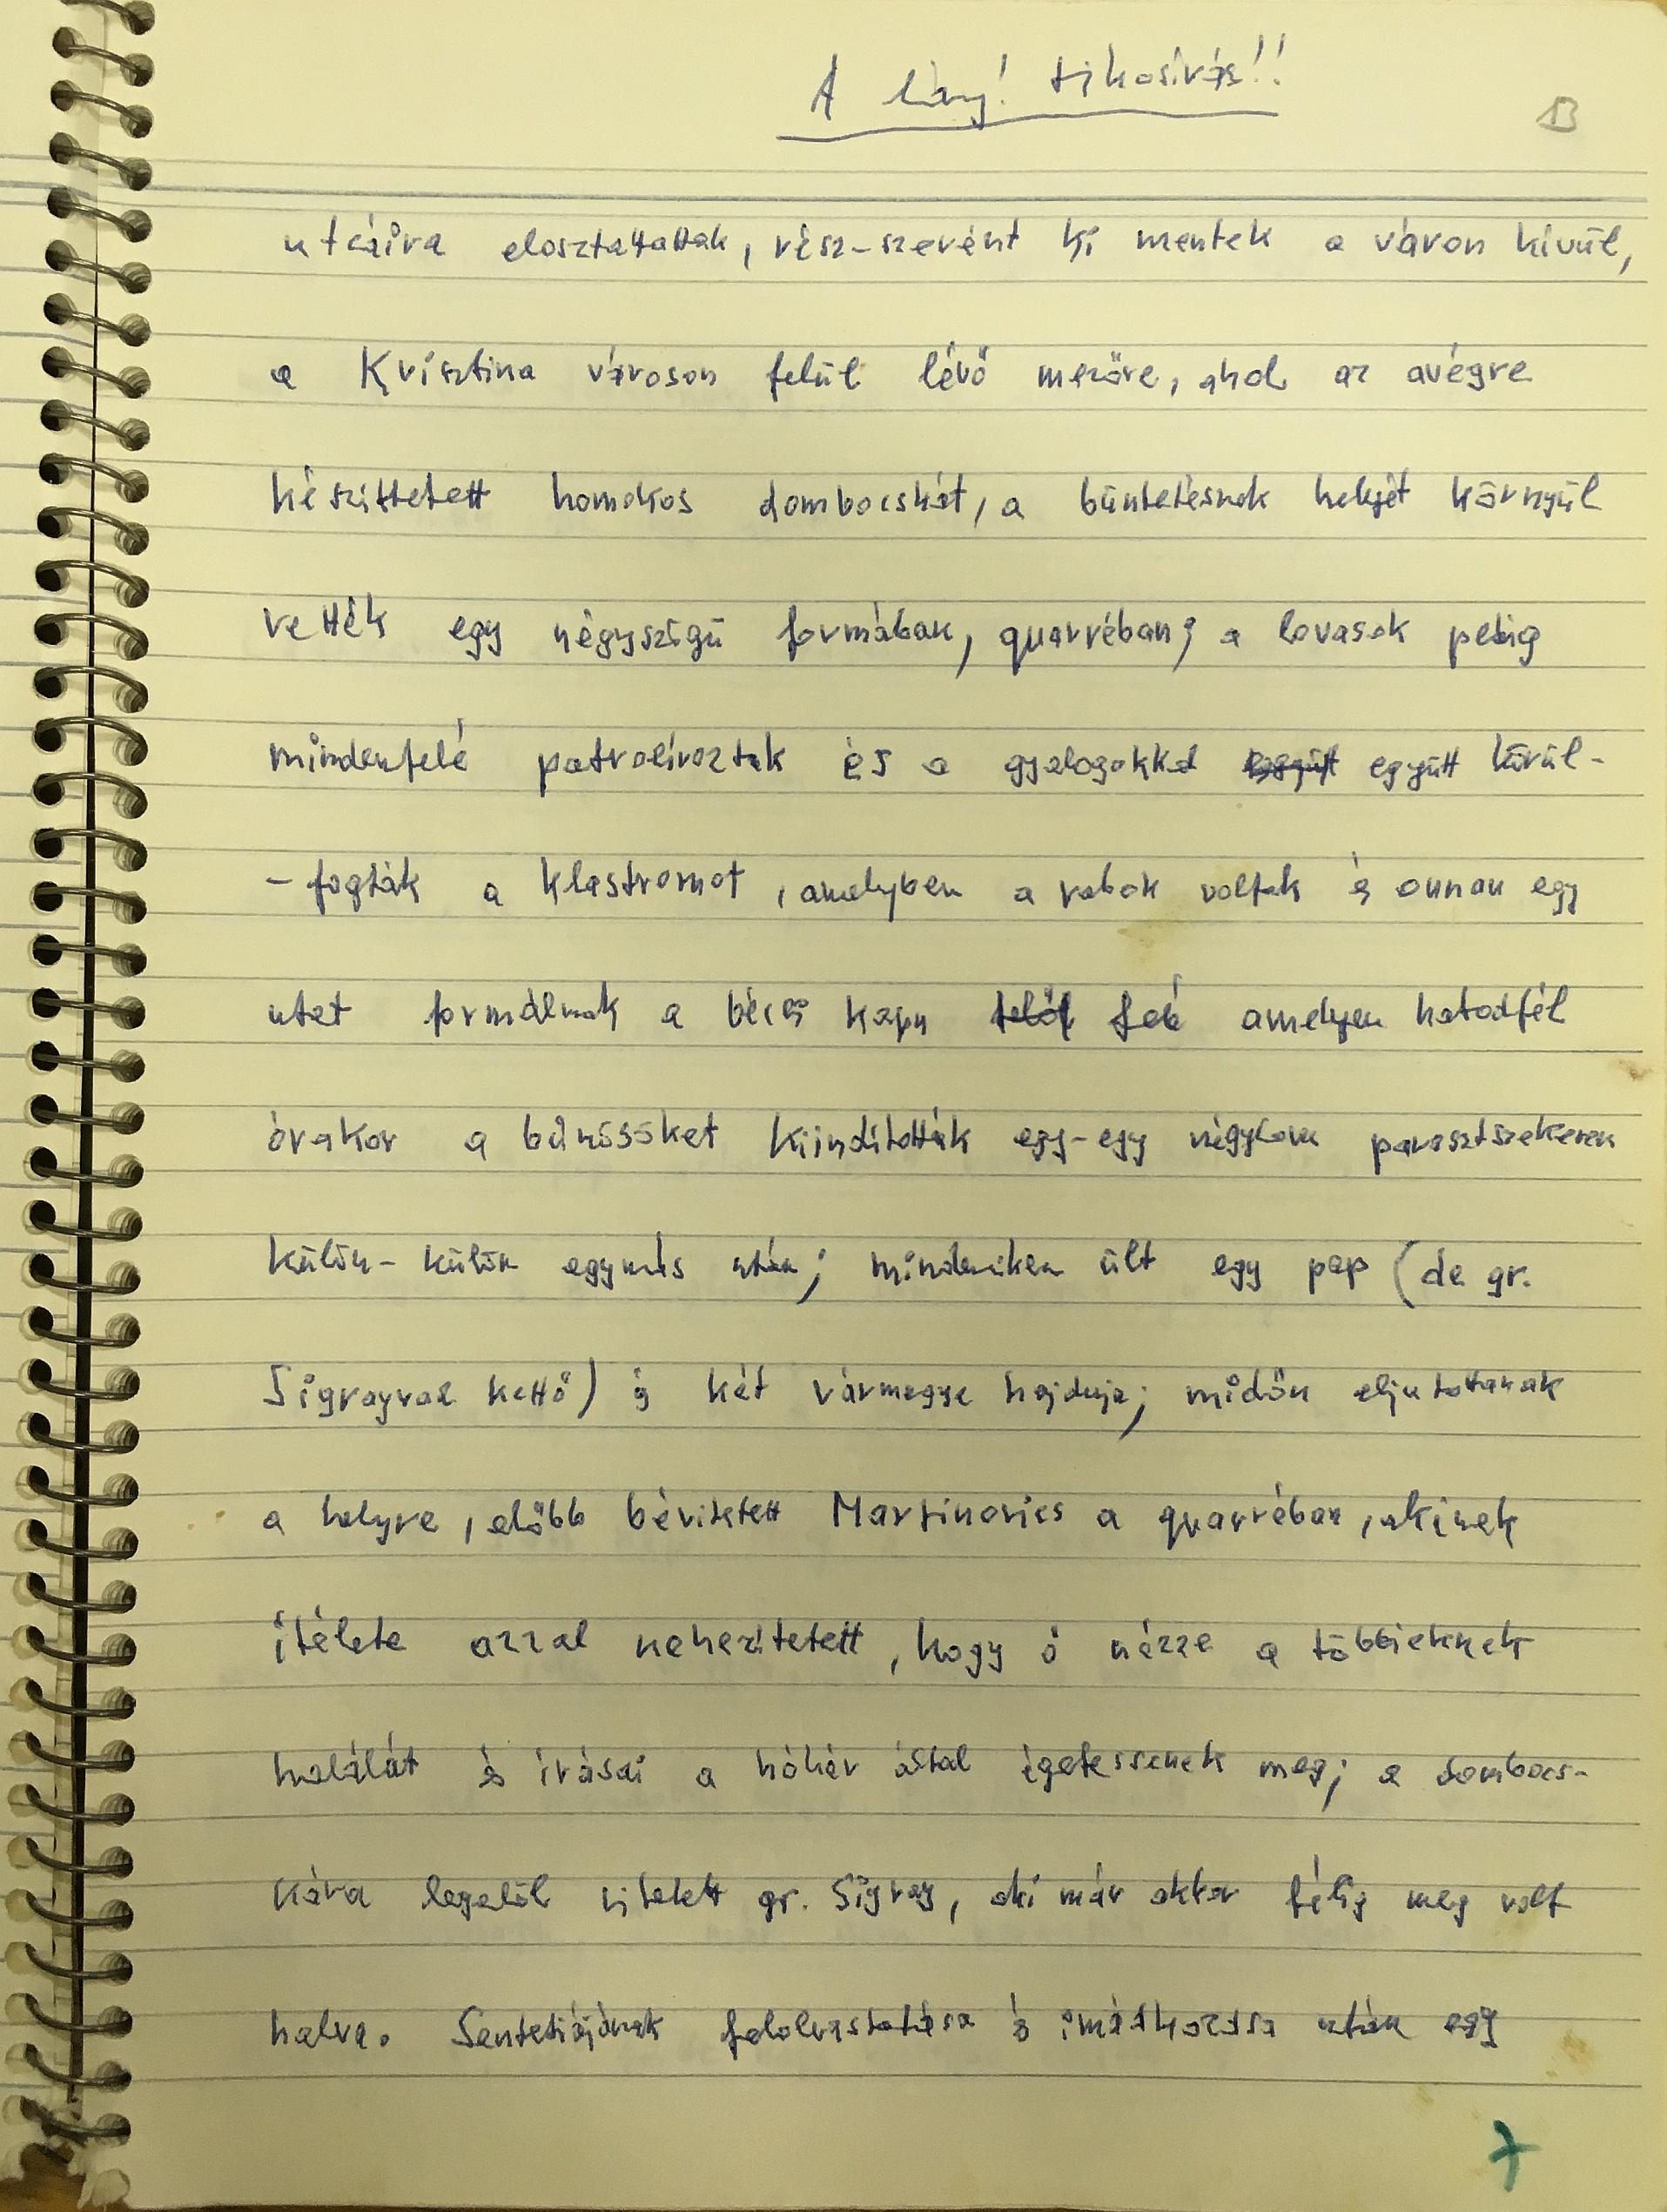 A lány! titkosírás!!
13
utcáira elosztattattak, rész-szerént ki mentek a váron kívül,
a Krisztina városon felül lévő mezőre, ahol az avégre
készíttetett homokos dombocskát, a büntetésnek helyét környül
vették egy négyszögü formában, quarréban; a lovasok pedig
mindenfelé patrolíroztak és a gyalogokkal együtt körül-
-fogták a klastromot, amelyben a rabok voltak és onnan egy
utat formálnak a bécsi kapu felé amelyen hatodfél
órakor a bűnösöket kiindították egy-egy négylovu parasztszekeren
külön-külön egymás után; mindeniken ült egy pap (de gr.
Sigrayval kettő) és két vármegye hajduja; midőn eljutottanak
a helyre, előbb bévitetett Martinovics a quarréban, akinek
ítélete azzal nehezítetett, hogy ő nézze a többieknek
halálát és írásai a hóhér által égetessenek meg; a dombocs-
kára legelől vitetett gr. Sigray, aki már akkor félig meg volt
halva. Sentetiájának felolvastatása és imádkozása után egy
7